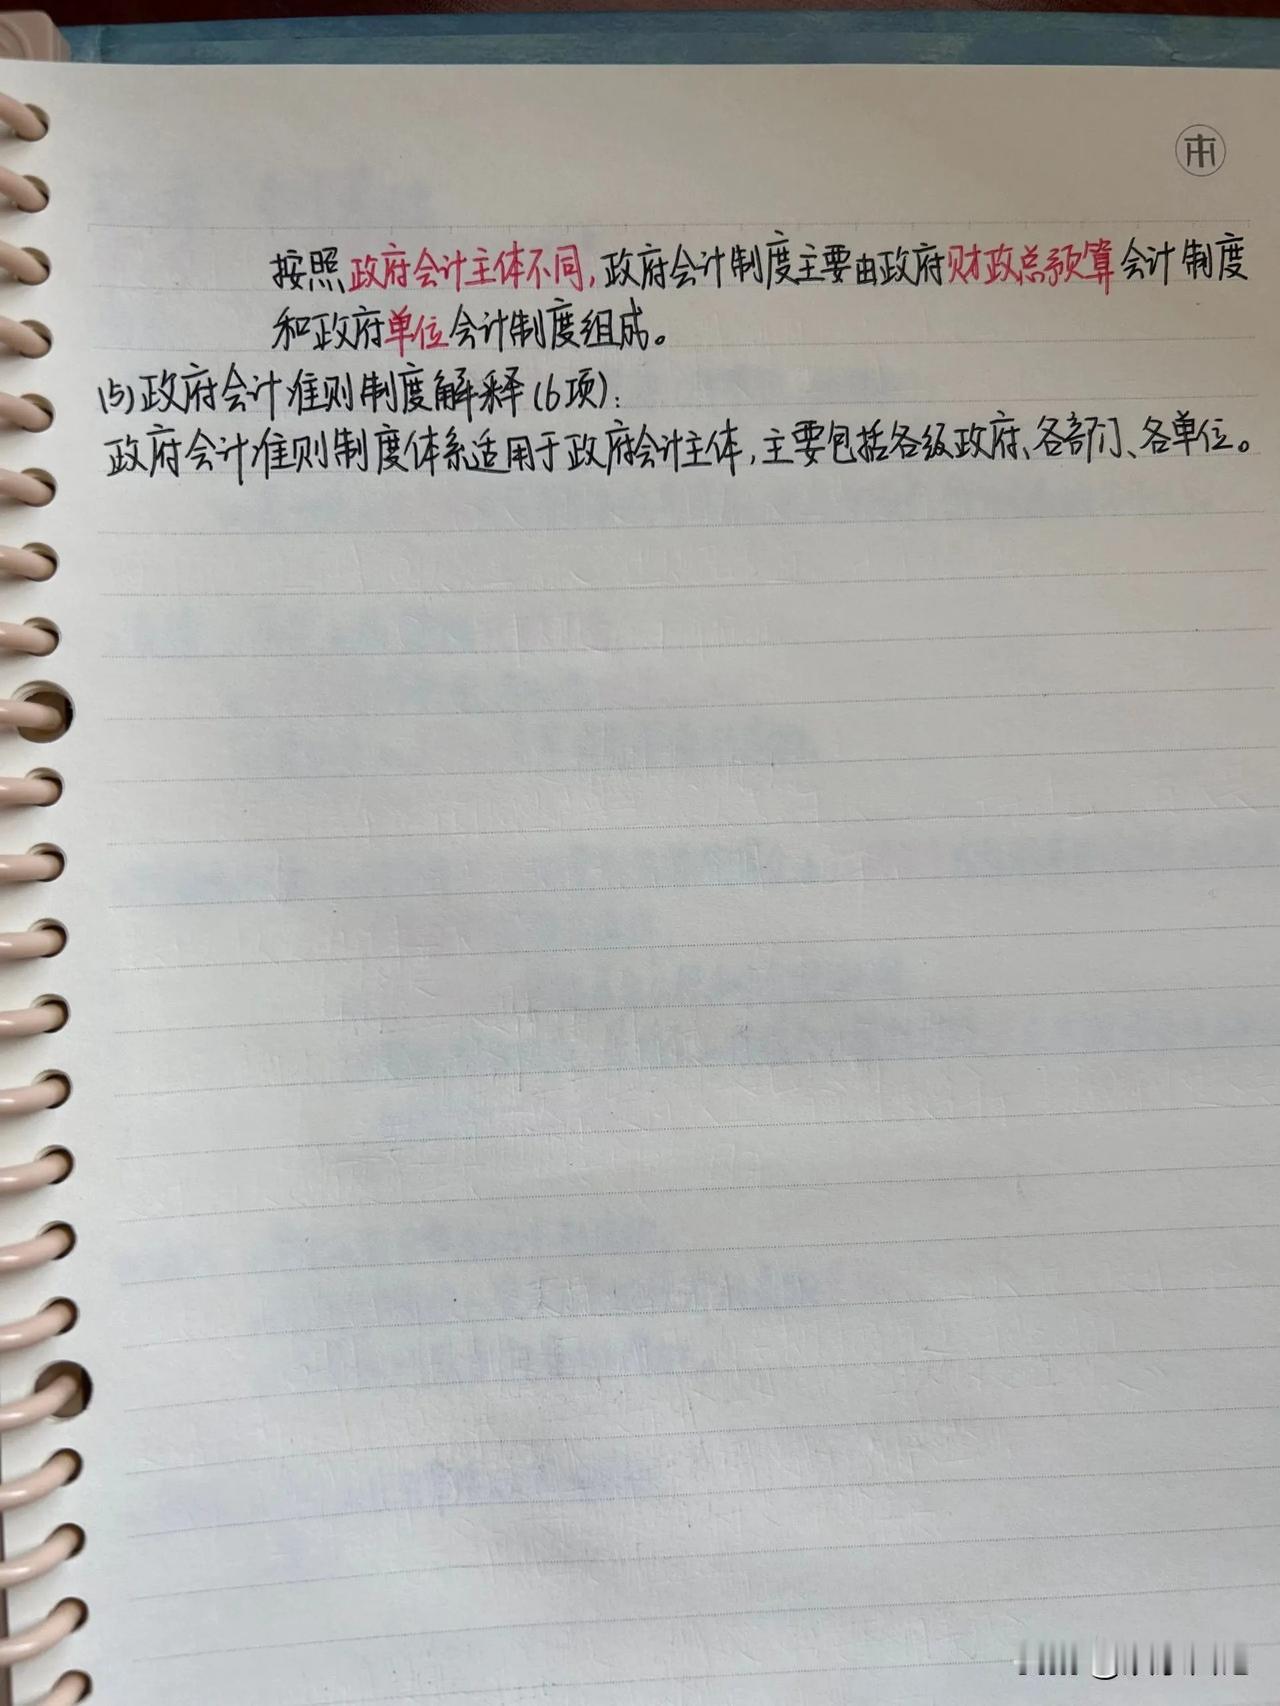 按照政府会计主体不同,政府会计制度主要由政府财政总预算会计制度
和政府单位会计制度组成。
(5)政府会计准则制度解释(6项):
政府会计准则制度体系适用于政府会计主体,主要包括各级政府、各部门、各单位。